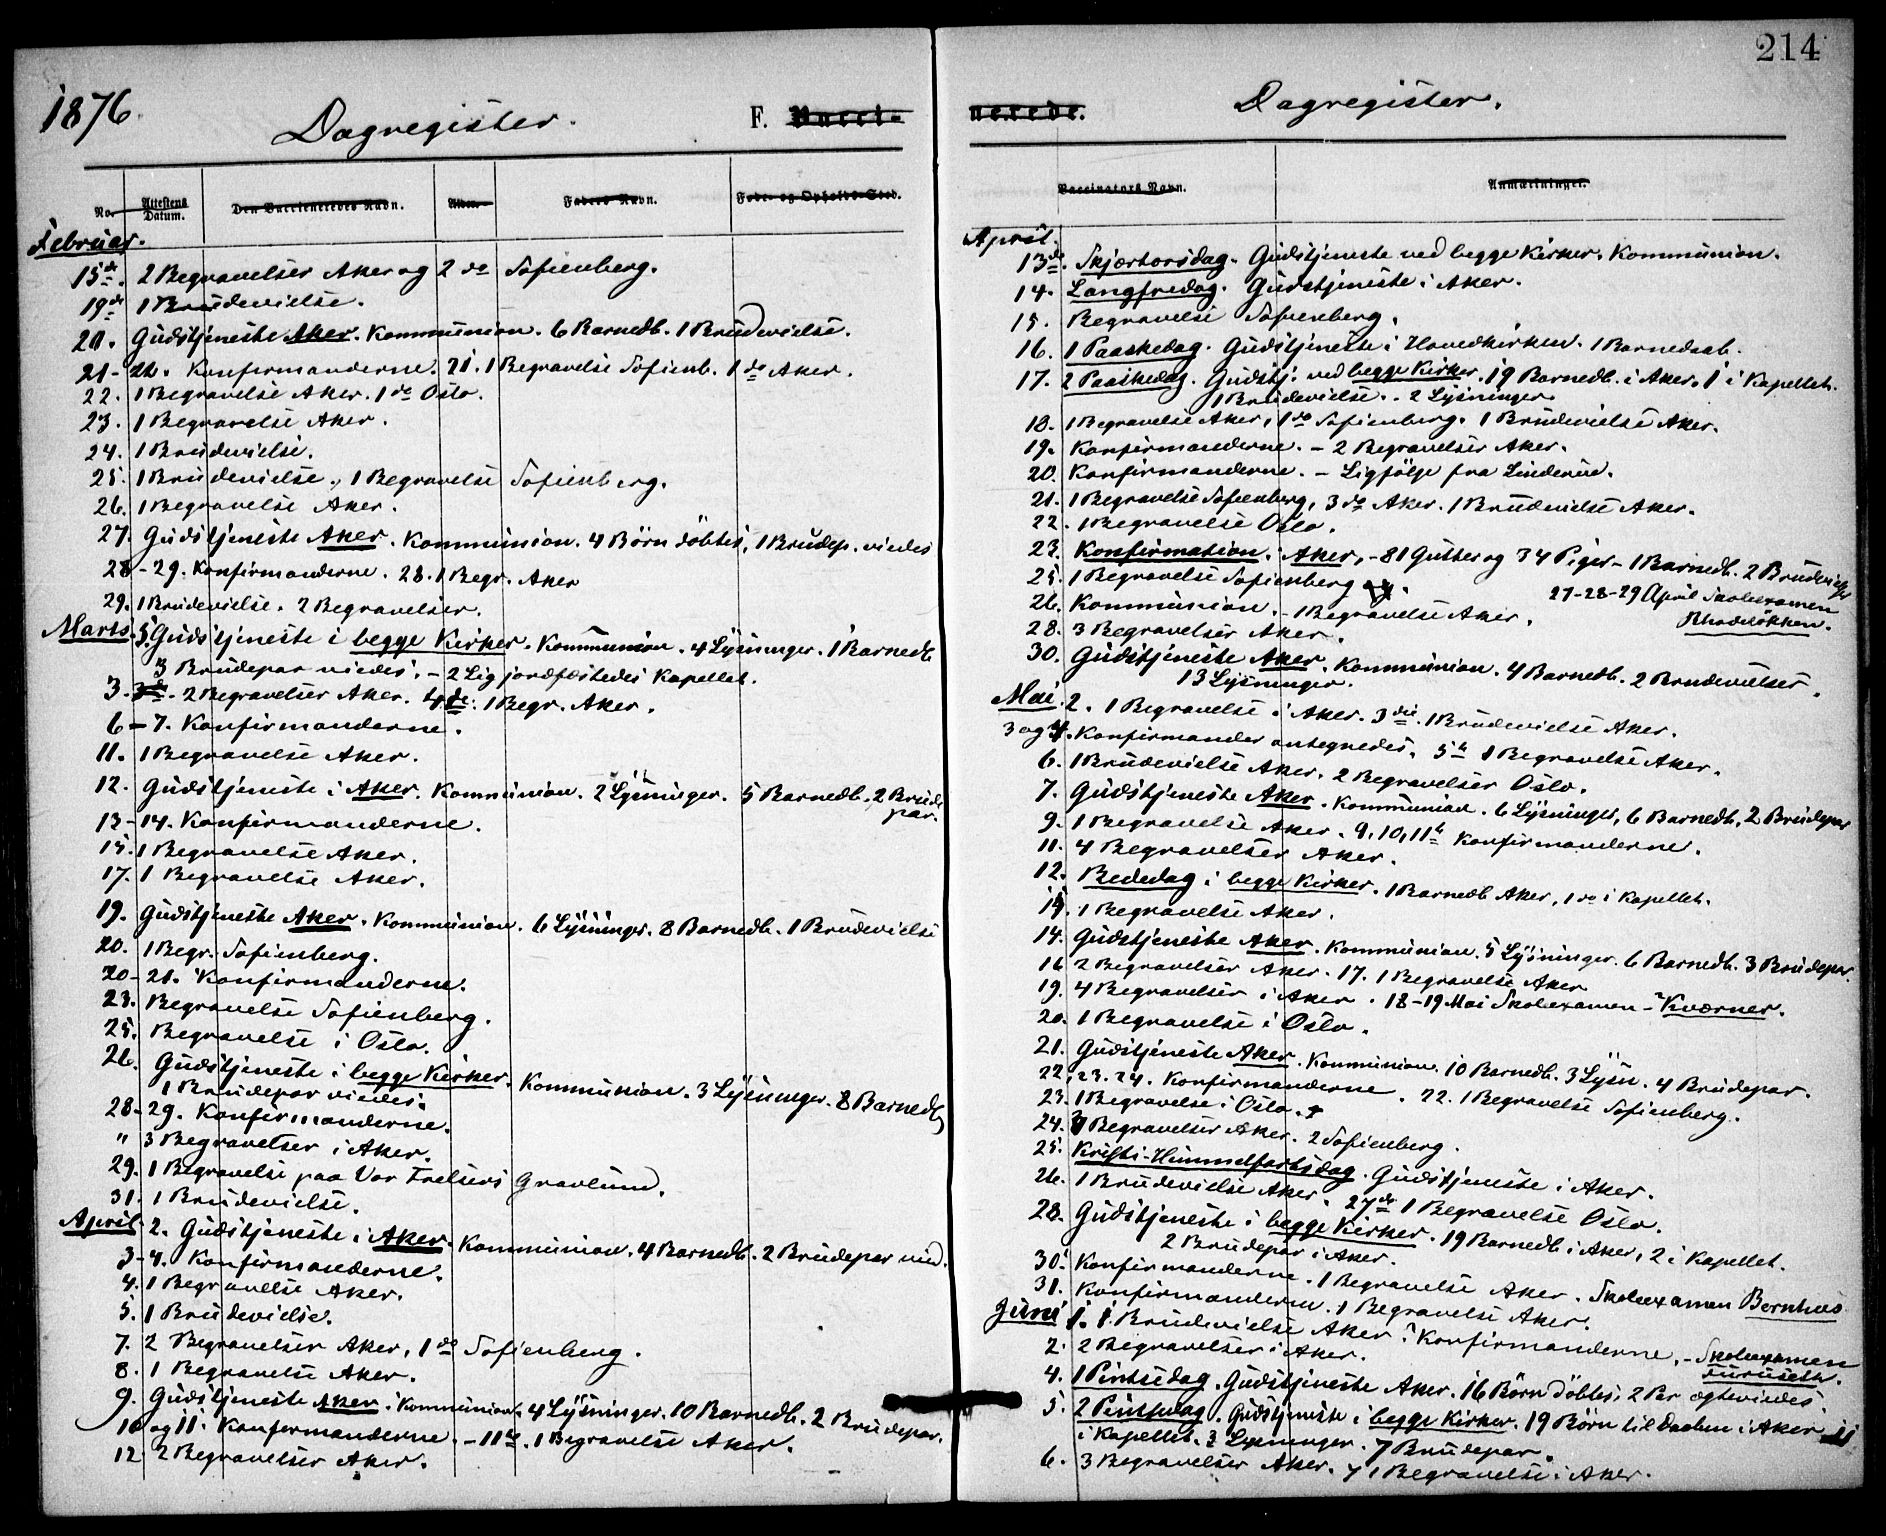 214
1876.
Dagregister.
F. Vacci-
No.
Attestens Datum.
Den Vaccineredes Navn.
Alder.
Faders Navn.
Føde- og Opholds-Sted.
Februar.
15de. 2 Begravelser Aker og 2 do Sofienberg.
19de 1 Brudevielse.
20. Gudstjeneste Aker. Kommunion. 6 Barnedb. 1 Brudevielse.
21-22. Konfirmanderne. 21. 1 Begravelse Sofienb. 1 do Aker.
22. 1 Begravelse Aker. 1 do Oslo.
23. 1 Begravelse Aker.
24. 1 Brudevielse.
25. 1 Brudevielse, 1 Begravelse Sofienberg.
26. 1 Begravelse Aker.
27. Gudstjeneste Aker. Kommunion. 4 Börn döbtes, 1 Brudep. viedes
28-29. Konfirmanderne. 28. 1 Begr. Aker
29. 1 Brudevielse. 2 Begravelser.
Marts. 5. Gudstjeneste i begge Kirker. Kommunion. 4 Lysninger. 1 Barnedb
3 Brudepar viedes. - 2 Lig jordfæstedes Kapellet.
3. 2 Begravelser Aker. 4de. 1 Begr. Aker.
6-7. Konfirmanderne.
11. 1 Begravelse Aker.
12. Gudstjeneste i Aker. Kommunion. 2 Lysninger. 5 Barnedb. 2 Brude
par.
13-14. Konfirmanderne.
15. 1 Begravelse Aker.
17. 1 Begravelse Aker.
19. Gudstjeneste Aker. Kommunion. 6 Lysninger. 8 Barnedb. 1 Brudevielse
20. 1 Begr. Sofienberg.
20-21. Konfirmanderne.
23. Begravelse Sofienberg.
25. Begravelse i Oslo.
26. Gudstjeneste i begge Kirker. Kommunion. 3 Lysninger. 8 Barnedb
1 Brudepar viedes.
28-29. Konfirmanderne.
" 3 Begravelser i Aker.
29. 1 Begravelse paa Vor Frelsers Gravlund.
31. 1 Brudevielse.
April 2. Gudstjeneste i Aker. Kommunion. 4 Barnedb. 2 Brudepar vied.
3-4. Konfirmanderne.
4. 1 Begravelse Aker.
5. 1 Brudevielse.
7. 2 Begravelser Aker, 1 do Sofienberg.
8. 1 Begravelse Aker.
9. Gudstjeneste Aker. Kommunion. 4 Lysninger. 10 Barnedb. 2 Brudepar.
10 og 11. Konfirmanderne. - 11te. 1 Begravelse Aker.
12 2 Begravelser Aker.
nerede.
Dagregister.
Vaccinators Navn.
Anmærkninger.
April.
13de. Skjærtorsdag. Gudstjeneste ved begge Kirker. Kommunion.
14. Langfredag. Gudstjeneste i Aker.
15. Begravelse Sofienberg.
16. 1 Paaskedag. Gudstjeneste i Hovedkirken. 1 Barnedaab.
17. 2 Paaskedag. Gudstj. ved begge Kirker. 19 Barnedb. i Aker. 1 i Kapellet.
1 Brudevielse. 2 Lysninger.
18. 1 Begravelse Aker, 1 do Sofienberg. 1 Brudevielse Aker.
19. Konfirmanderne. - 2 Begravelser Aker.
20. Konfirmanderne. - Ligfölge fra Linderud.
21. 1 Begravelse Sofienberg, 3 do Aker. 1 Brudevielse Aker.
22. 1 Begravelse Oslo.
23. Konfirmation. Aker, - 81 Gutter og 34 Piger - 1 Barnedb. 2 Brudeviels
25. 1 Begravelse Sofienberg
27-28-29 April Skolexamen
26. Kommunion. - 1 Begravelse Aker.
Rhodelökken.
28. 3 Begravelser Aker.
30. Gudstjeneste Aker. Kommunion. 4 Barnedb. 2 Brudevielser.
13 Lysninger.
Mai. 2. 1 Begravelse i Aker. 3die. 1 Brudevielse Aker.
3 og 4. Konfirmander antegnedes. 5te 1 Begravelse Aker.
6. 1 Brudevielse Aker. 2 Begravelser Oslo.
7. Gudstjeneste Aker. Kommunion. 6 Lysninger, 6 Barnedb, 2 Brudepar
9. 1 Begravelse Aker. 9, 10, 11te Konfirmanderne.
11. 4 Begravelser Aker.
12. Bededag i begge Kirker. 1 Barnedb Aker, 1 do i Kapellet.
1 Begravelse Aker.
14. Gudstjeneste Aker. Kommunion. 5 Lysninger. 6 Barnedb. 3 Brudepar.
16 2 Begravelser Aker. 17. 1 Begravelse Aker
19. 4 Begravelser i Aker. 18-19 Mai Skolexamen - Kværner.
20. 1 Begravelse i Oslo.
21. Gudstjeneste Aker. Kommunion. 10 Barnedb. 3 Lysn. 4 Brudepar.
22, 23. 24. Konfirmanderne. 22. 1 Begravelse Sofienberg.
23. 1 Begravelse i Oslo.
24. Begravelser Aker. 2 Sofienberg.
25. Kristi-Himmelfartsdag. Gudstjeneste i Aker.
26. 1 Brudevielse Aker. 27de 1 Begravelse Oslo.
28. Gudstjeneste i begge Kirker. 19 Barnedb i Aker, 2 i Kapellet.
2 Brudepar i Aker.
30. Konfirmanderne. 1 Begravelse Aker. Skolexamen Bernhus
31. Konfirmanderne. 1 Begravelse Aker.
Juni 1. 1 Brudevielse Aker. Konfirmanderne. - Skolexamen
Furuseth.
2. 2 Begravelser i Aker.
4. 1 Pintsedag. Gudstjeneste Aker. 16 Börn döbtes. 2 Par ægteviedes.
5. 2 Pintsedag. Gudstjeneste i begge Kirker. 19 Börn til Daaben i Aker
i Kapellet. 3 Lysninger. 7 Brudepar.
6. 3 Begravelser Aker. 7 1 Begravelse i Aker.